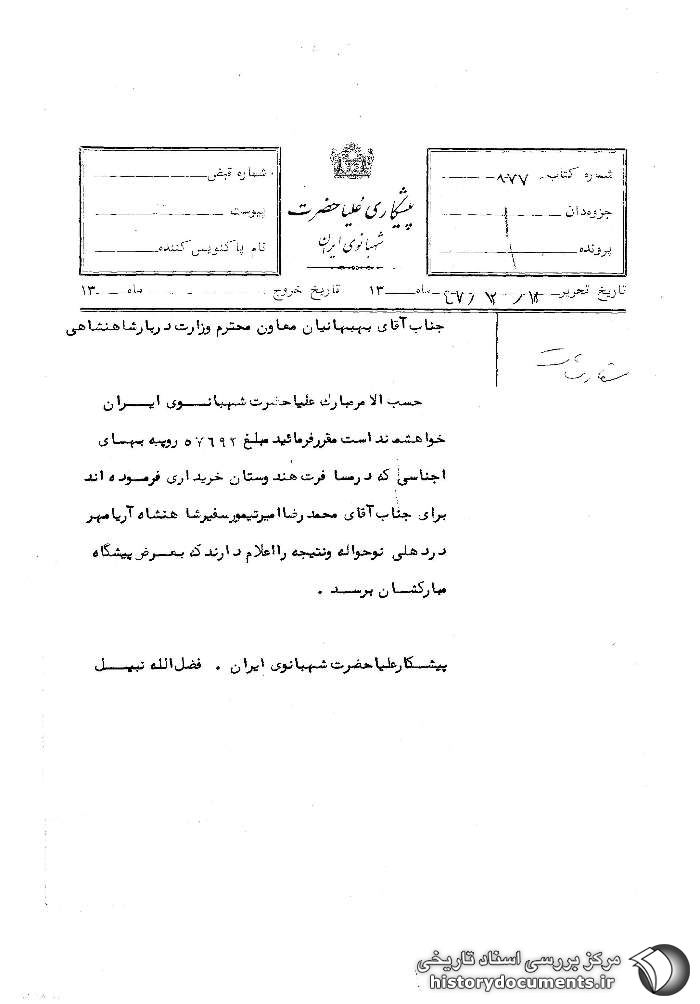 شماره کتاب ۸۷۷
جزوه‌دان
پرونده
پیشکاری علیاحضرت
شهبانوی ایران
شماره قبض
پیوست
نام پاکنویس کننده
تاریخ تحریر ماه ۱۳ تاریخ خروج ماه ۱۳
جناب آقای بهبهانیان معاون محترم وزارت دربار شاهنشاهی
حسب الامر مبارک علیاحضرت شهبانوی ایران
خواهشمند است مقرر فرمائید مبلغ ۵۷۶۹۲ روپیه بهای
اجناسی که در مسافرت هندوستان خریداری فرموده اند
برای جناب آقای محمد رضا امیرتیمور سفیر شاهنشاه آریامهر
در دهلی نو حواله و نتیجه را اعلام دارند که بعرض پیشگاه
مبارکشان برسد .
پیشکار علیاحضرت شهبانوی ایران . فضل الله نبیل
مرکز بررسی اسناد تاریخی
historydocuments.ir